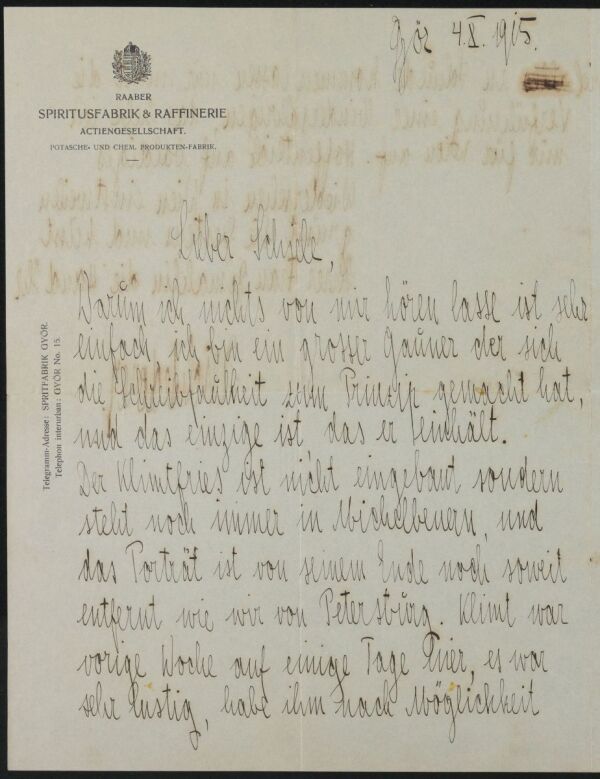 Györ 4.X. 1915.
RAABER
SPIRITUSFABRIK & RAFFINERIE
ACTIENGESELLSCHAFT.
POTASCHE- UND CHEM. PRODUKTEN-FABRIK.
Telegramm-Adresse: SPRITFABRIK GYŐR.
Telephon interurban: GYŐR No. 15.
Lieber Schiele,
Warum ich nichts von mir hören lasse ist sehr
einfach, ich bin ein grosser Gauner der sich
die Schreibfaulheit zum Prinzip gemacht hat,
und das einzige ist das er einhält.
Der Klimtfries ist nicht eingebaut sondern
steht noch immer in Michelbeuern, und
das Porträt ist von seinem Ende noch soweit
entfernt wie wir von Petersburg. Klimt war
vorige Woche auf einige Tage hier, es war
sehr lustig, habe ihm nach Möglichkeit